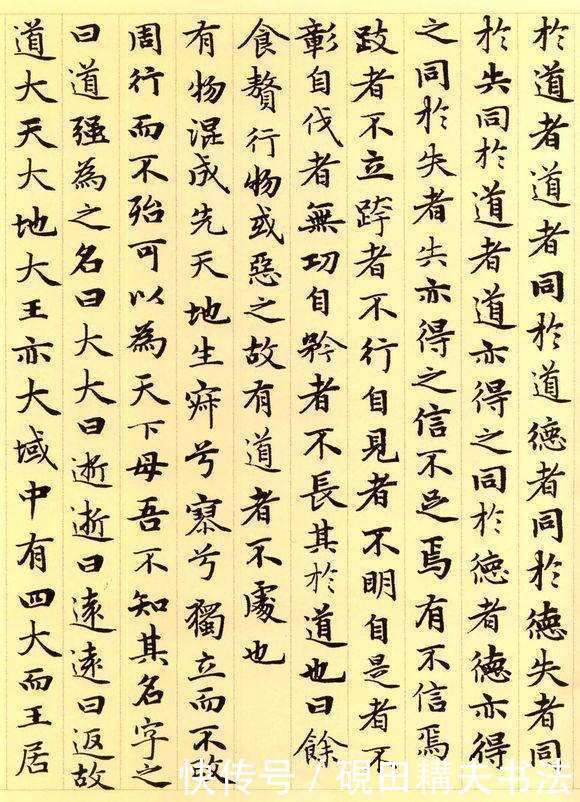 於道者道者同於道德者同於德失者同
於失同於道者道亦得之同於德者德亦得
之同於失者失亦得之信不足焉有不信焉
跂者不立跨者不行自見者不明自是者不
彰自伐者無功自矜者不長其於道也曰餘
食贅行物或惡之故有道者不處也
有物混成先天地生寂兮寥兮獨立而不改
周行而不殆可以為天下母吾不知其名字之
曰道强為之名曰大大曰逝逝曰遠遠曰返故
道大天大地大王亦大域中有四大而王居
快传号 / 硯田耩夫书法